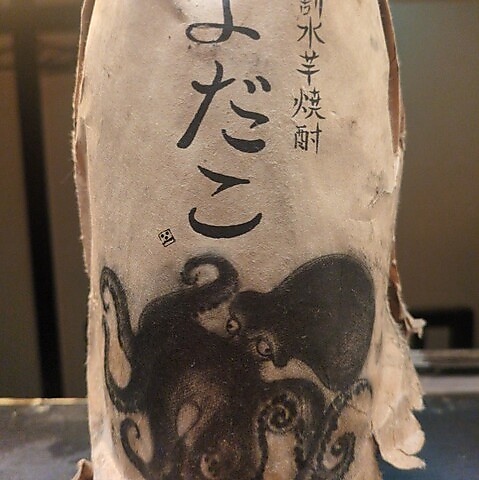 割水芋焼酎
よだこ